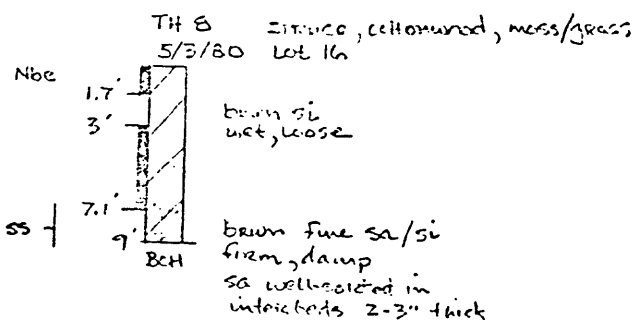 TH 8 spruce, cottonwood, moss/grass
5/3/80 Lot 16
Nbe
1.7'
3'
brown si
wet, loose
7.1'
SS
9'
BCH
brown fine sa/si
firm, damp
sa well-sorted in
interbeds 2-3" thick